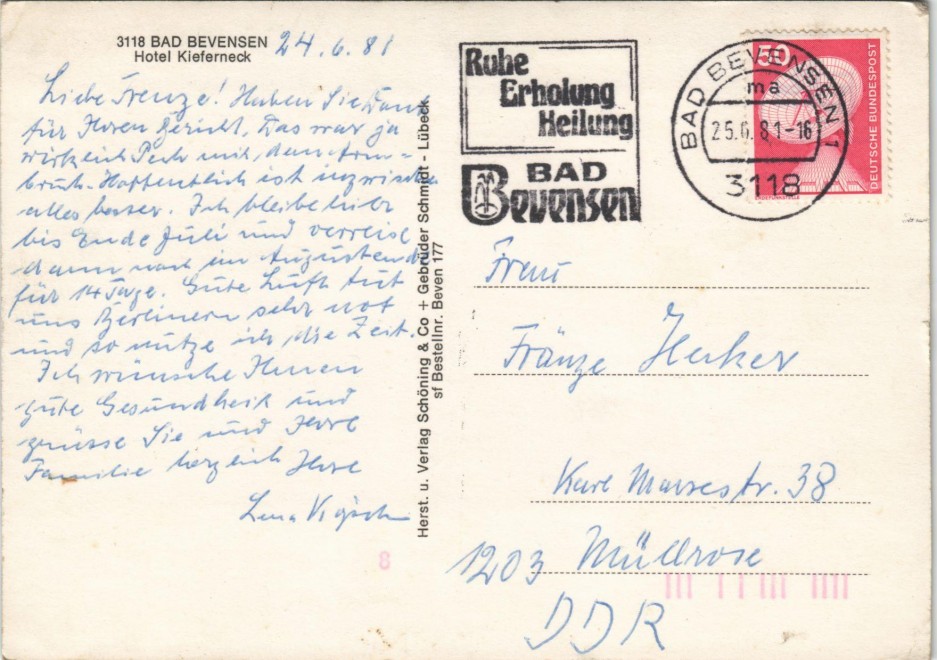 3118 BAD BEVENSEN
Hotel Kieferneck
24.6.81
Liebe Frenze! Haben Sie Dank
für Ihren Bericht. Das war ja
wirklich Pech mit dem Arm-
bruch. Hoffentlich ist inzwischen
alles besser. Ich bleibe hier
bis Ende Juli und verreise
dann noch im Augustende
für 14 Tage. Gute Luft tut
uns Berlinern sehr not
und so nutze ich die Zeit.
Ich wünsche Ihnen
gute Gesundheit und
grüsse Sie und Ihre
Familie herzlich Ihre
Lena
Herst. u. Verlag Schöning & Co + Gebrüder Schmidt - Lübeck
sf Bestellnr. Beven 177
Ruhe
Erholung
Heilung
BAD
Bevensen
BAD BEVENSEN 1
ma
25.6.81-16
3118
50
DEUTSCHE BUNDESPOST
Frau
Fränze Hecker
Karl Marxestr. 38
1203 Müllrose
DDR
8